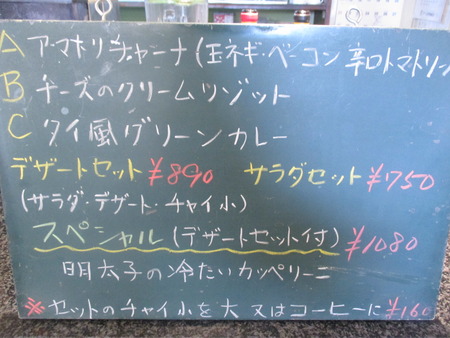 A アマトリチャーナ(玉ネギ・ベーコン 辛口トマトソー
B チーズのクリームリゾット
C タイ風グリーンカレー
デザートセット ¥890 サラダセット ¥750
(サラダ・デザート・チャイ小)
スペシャル(デザートセット付) ¥1080
明太子の冷たいカッペリーニ
※セットのチャイ小を大又はコーヒーに¥160